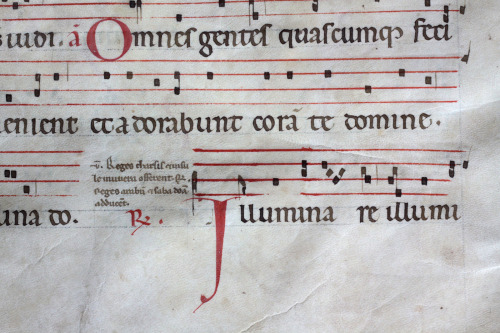 iudi. a Omnes gentes quascumq; feci
enient et adorabunt corā te domine.
v. Reges tharsis et insu
le munera offerent. Re.
reges arabū et saba dōa
adducēt.
una do. Re. Illumina re illumi